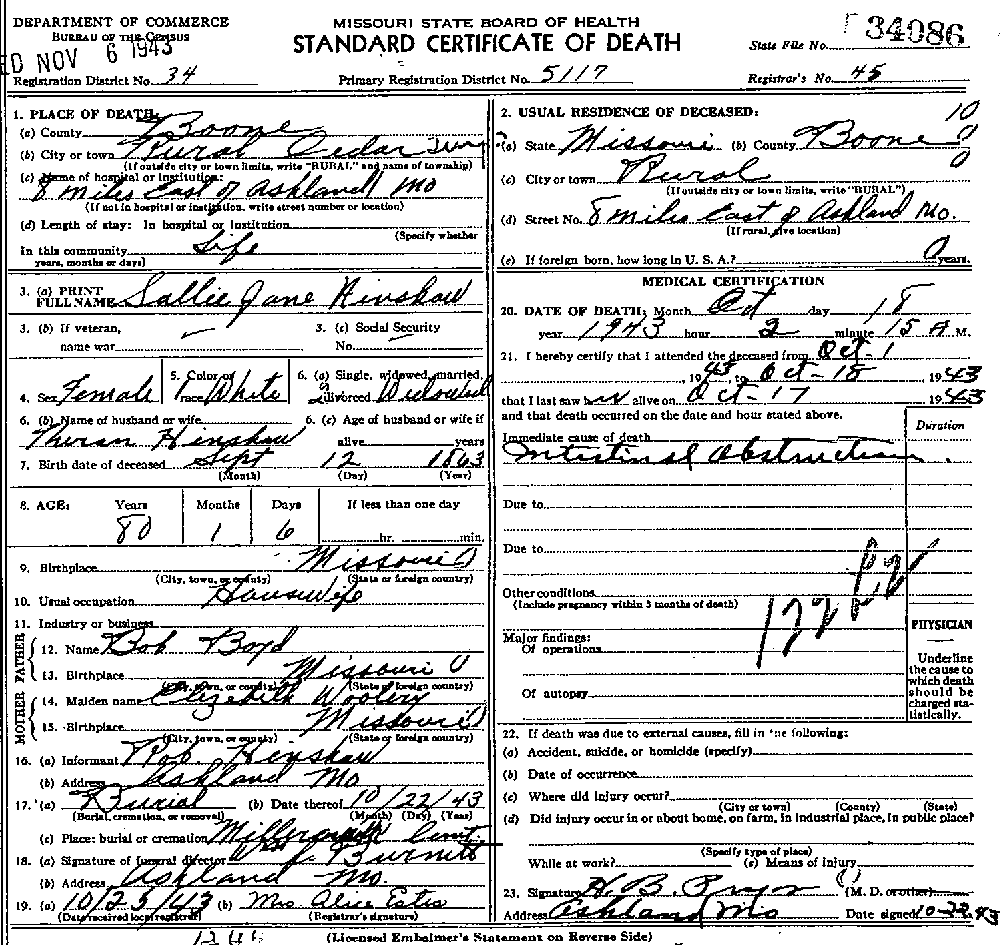 DEPARTMENT OF COMMERCE
BUREAU OF THE CENSUS
ED NOV 6 1943
MISSOURI STATE BOARD OF HEALTH
STANDARD CERTIFICATE OF DEATH
State File No. 34086
Registration District No. 34
Primary Registration District No. 5117
Registrar's No. 45
1. PLACE OF DEATH:
(a) County Boone
(b) City or town Rural Cedar
(If outside city or town limits, write "RURAL" and name of township)
(c) Name of hospital or institution:
8 miles East of Ashland Mo
(If not in hospital or institution, write street number or location)
(d) Length of stay: In hospital or institution
(Specify whether
In this community Life
years, months or days)
3. (a) PRINT FULL NAME Sallie Jane Hinshaw
3. (b) If veteran, name war
3. (c) Social Security No.
4. Sex Female
5. Color or race White
6. (a) Single, widowed, married, divorced Widowed
6. (b) Name of husband or wife
6. (c) Age of husband or wife if alive years
Theran Hinshaw
7. Birth date of deceased Sept 12 1863
(Month) (Day) (Year)
8. AGE: Years Months Days If less than one day
80 1 6 hr. min.
9. Birthplace Missouri
(City, town, or county) (State or foreign country)
10. Usual occupation Housewife
11. Industry or business
FATHER
12. Name Bob Boyd
13. Birthplace Missouri
(City, town, or county) (State or foreign country)
MOTHER
14. Maiden name Elizebeth Woolery
15. Birthplace Missouri
(City, town, or county) (State or foreign country)
16. (a) Informant Rob. Henshaw
(b) Address Ashland Mo
17. (a) Burial (b) Date thereof 10/22/43
(Burial, cremation, or removal) (Month) (Day) (Year)
(c) Place: burial or cremation
18. (a) Signature of funeral director Burnett
(b) Address Ashland Mo.
19. (a) 10/25/43 (b) Mrs Alice Estes
(Date received local registrar) (Registrar's signature)
2. USUAL RESIDENCE OF DECEASED:
(a) State Missouri (b) County Boone
(c) City or town Rural
(If outside city or town limits, write "RURAL")
(d) Street No. 8 miles East of Ashland Mo.
(If rural, give location)
(e) If foreign born, how long in U. S. A.? 0 years.
10
0
0
MEDICAL CERTIFICATION
20. DATE OF DEATH: Month Oct day 18
year 1943 hour 2 minute 15 A M.
21. I hereby certify that I attended the deceased from Oct-1
, 1943, to Oct-18 1943
that I last saw her alive on Oct-17 1943
and that death occurred on the date and hour stated above.
Duration
Immediate cause of death
Intestinal Obstruction.
Due to
Due to
Other conditions
(Include pregnancy within 3 months of death)
Major findings:
Of operations
Of autopsy
PHYSICIAN
Underline
the cause to
which death
should be
charged sta-
tistically.
22. If death was due to external causes, fill in the following:
(a) Accident, suicide, or homicide (specify)
(b) Date of occurrence
(c) Where did injury occur?
(City or town) (County) (State)
(d) Did injury occur in or about home, on farm, in industrial place, in public place?
(Specify type of place)
While at work? (e) Means of injury
23. Signature H. B. (M. D. or other)
Address Ashland Mo Date signed 10-22-43
(Licensed Embalmer's Statement on Reverse Side)